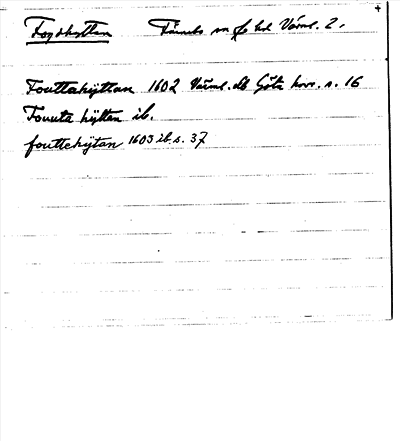 Fogdhyttan Färnebo sn o hd Värml. 2.
Fouttahyttan 1602 Värml. Göta s. 16
Fouuta hyttan ib.
fouttehÿtan 1603 ib. s. 37